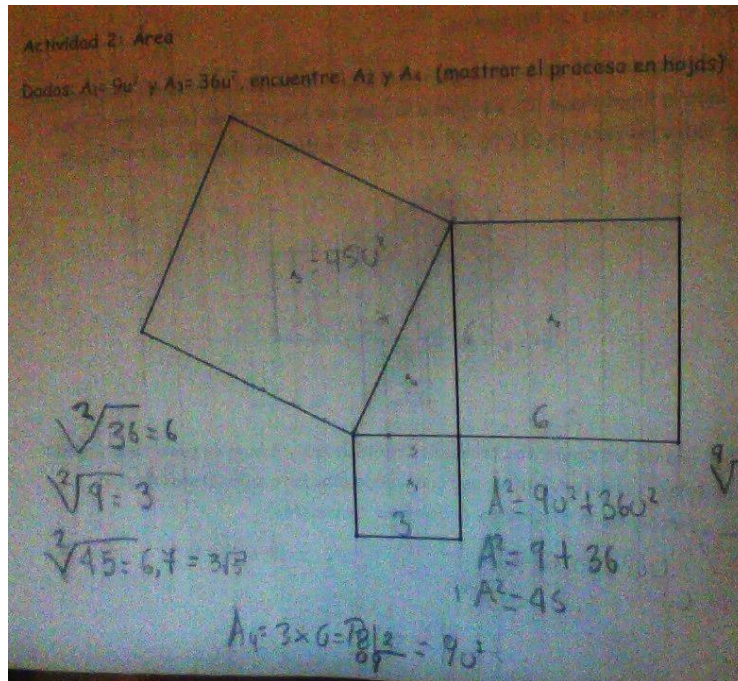 Actividad 2: Área
Dados: A₁= 9u² y A₃= 36u², encuentre: A₂ y A₄ (mostrar el proceso en hojas)
= 45u²
6
6
²√36 = 6
²√9 = 3
3
A² = 9u² + 36u²
²√45 = 6,7 = 3√5
A² = 9 + 36
A² = 45
A₄ = 3 x 6 = 18 |2 = 9u²